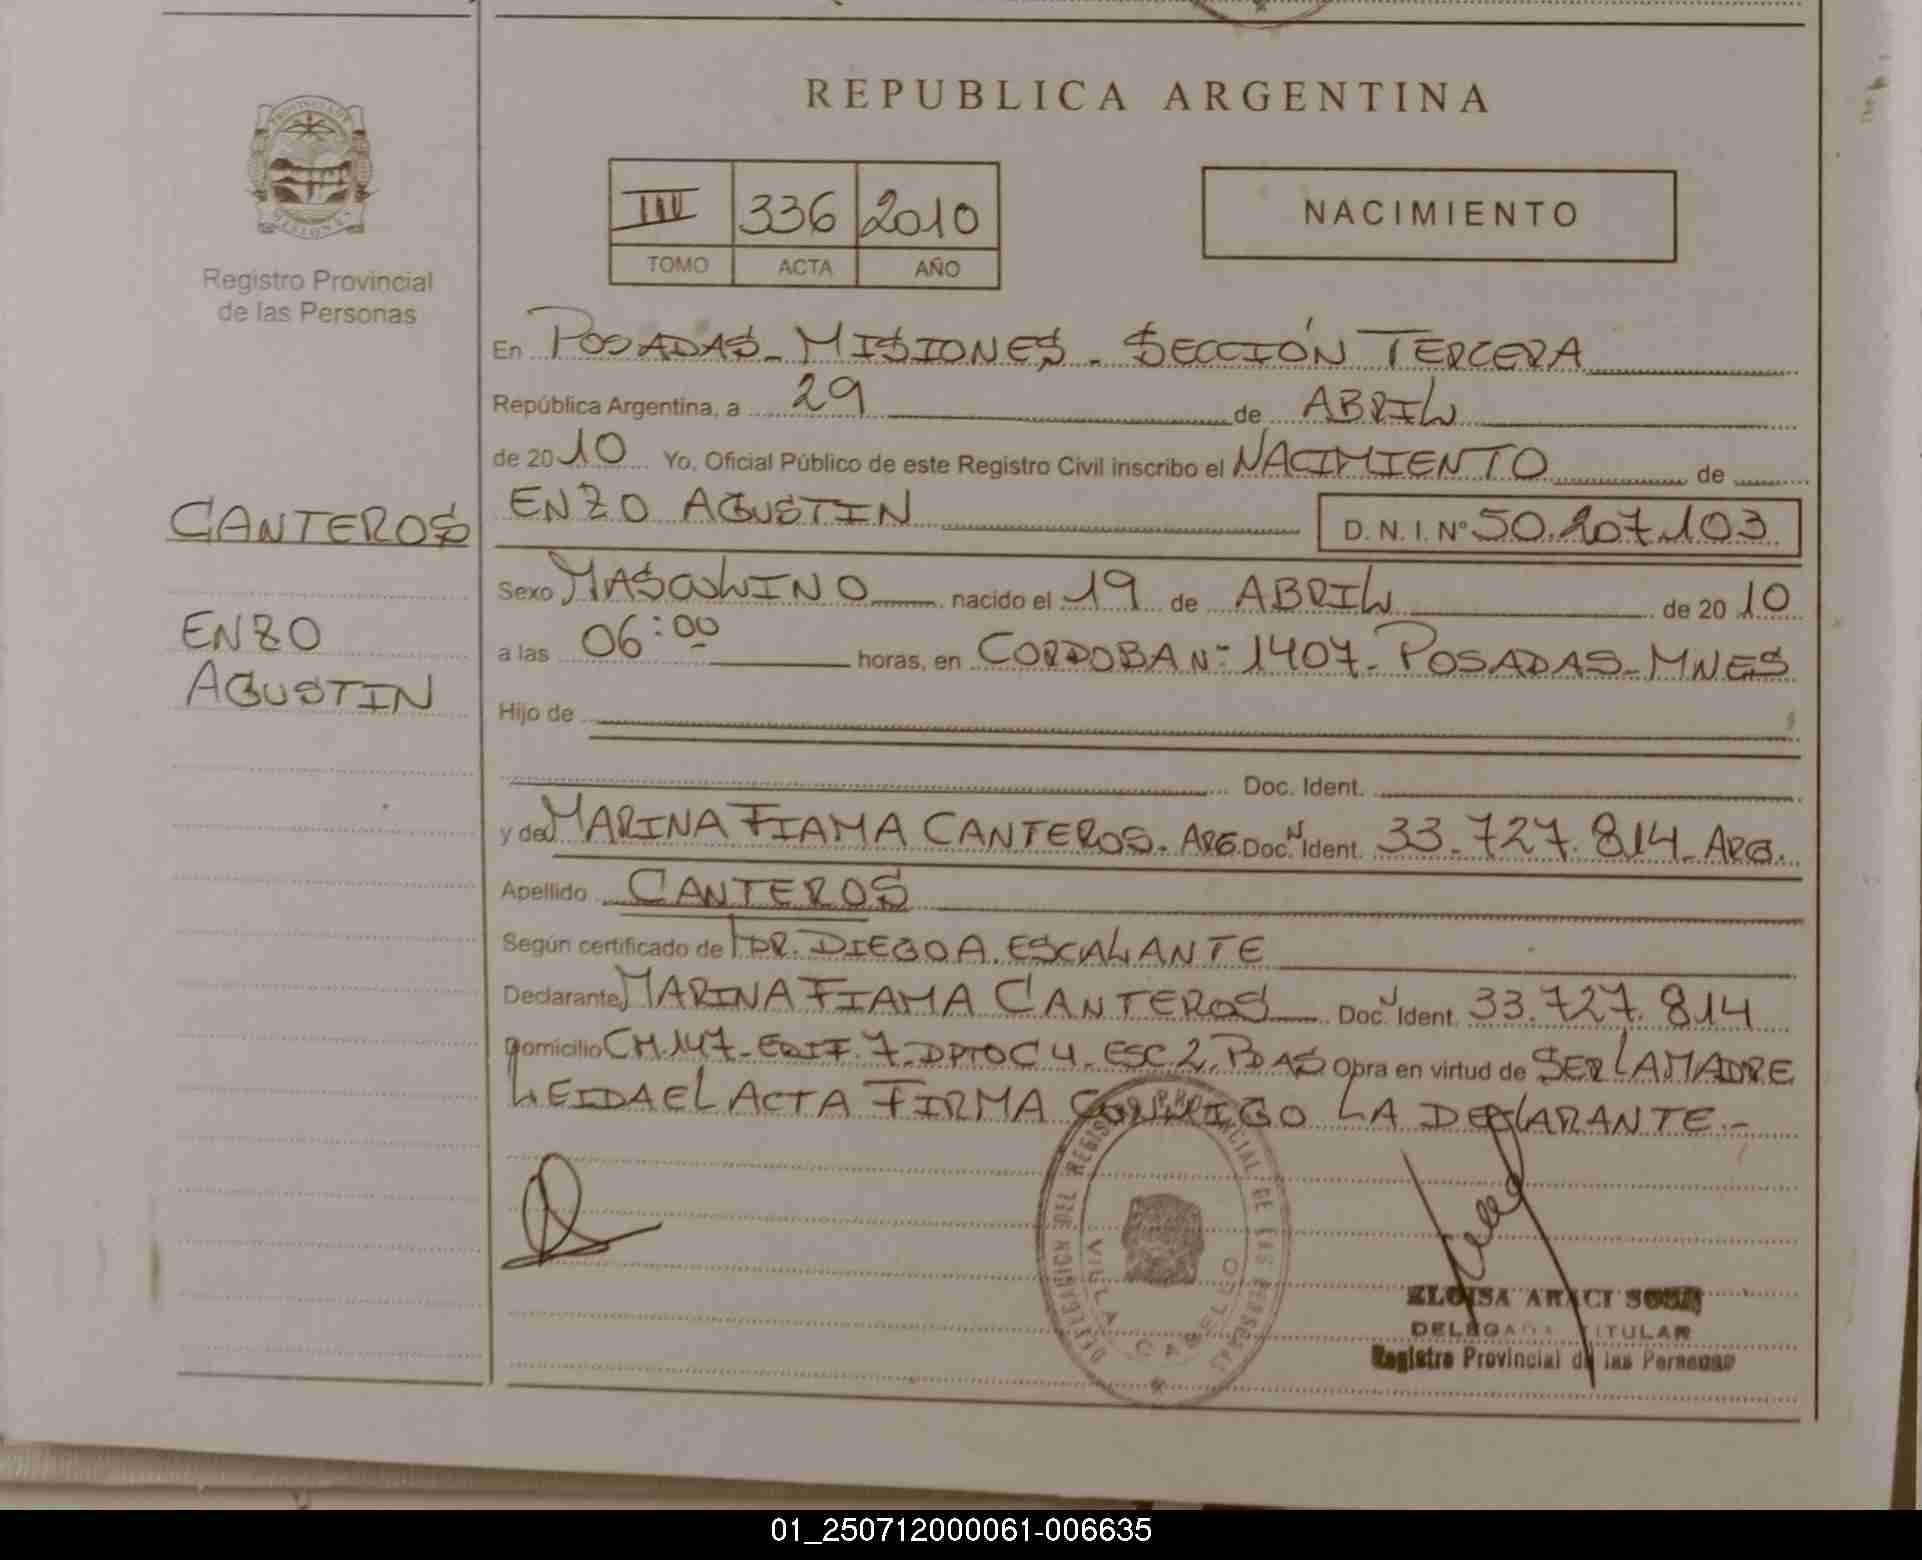 REPUBLICA ARGENTINA
PROVINCIA DE MISIONES
Registro Provincial
de las Personas
III 336 2010
TOMO ACTA AÑO
NACIMIENTO
En POSADAS - MISIONES - SECCIÓN TERCERA
República Argentina, a 29 de ABRIL
de 2010 Yo, Oficial Público de este Registro Civil inscribo el NACIMIENTO de
CANTEROS
ENZO
AGUSTIN
ENZO AGUSTIN D.N.I. Nº 50.207.103
Sexo MASCULINO nacido el 19 de ABRIL de 2010
a las 06:00 horas, en CORDOBA Nº 1407 - POSADAS - MNES
Hijo de
Doc. Ident.
y de MARINA FIAMA CANTEROS - ARG. Doc. N Ident. 33.727.814 - ARG.
Apellido CANTEROS
Según certificado de DR. DIEGO A. ESCALANTE
Declarante MARINA FIAMA CANTEROS Doc. Ident. 33.727.814
Domicilio CH.147 - EDIF. 7 - DPTO C4 - ESC 2. PDAS Obra en virtud de SER LA MADRE
LEIDA EL ACTA FIRMA CONMIGO LA DECLARANTE.-
DELEGACION DEL REGISTRO PROVINCIAL DE LAS PERSONAS
VILLA CABELLO
ELOISA ARACI SOSA
DELEGADA TITULAR
Registro Provincial de las Personas
01_250712000061-006635